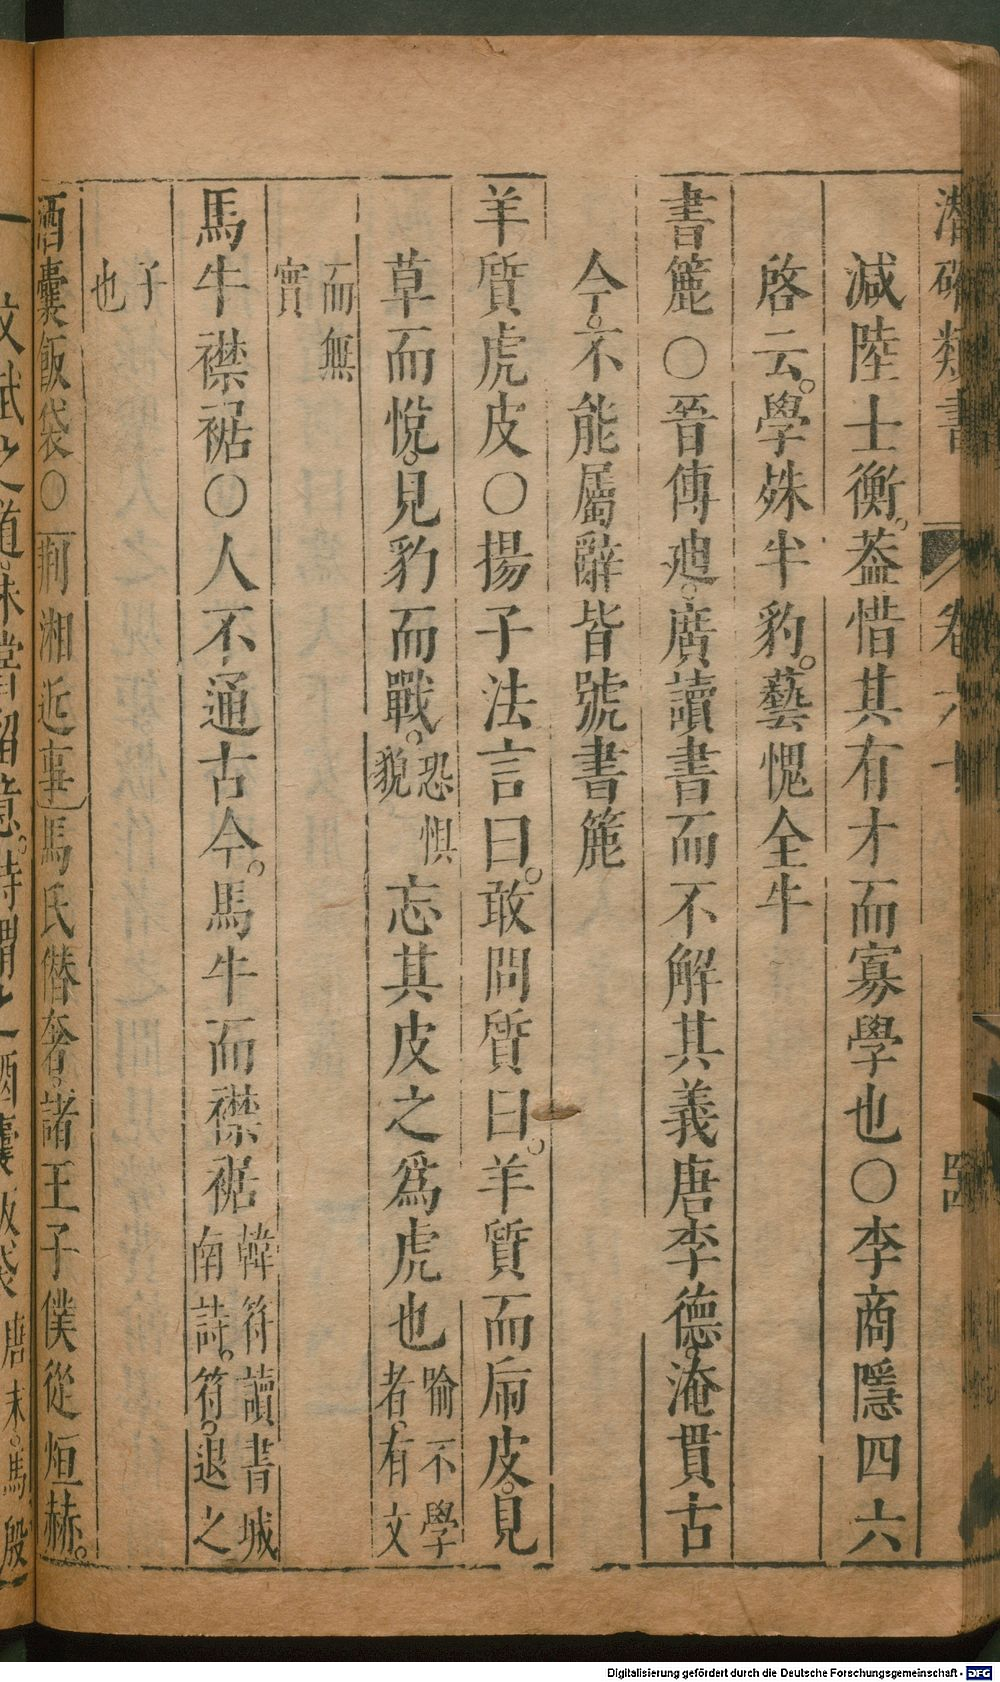 潛確類書 卷六十 四
減陸士衡。葢惜其有才而寡學也○李商隱四六
啓云。學殊半豹。藝愧全牛
書簏○晉傳廸。廣讀書而不解其義唐李德。淹貫古
今。不能屬辭皆號書簏
羊質虎皮○揚子法言曰。敢問質曰。羊質而虎皮。見
草而悅。見豹而戰。恐懼貌忘其皮之爲虎也喻不學者。有文
而無實
馬牛襟裾○人不通古今。馬牛而襟裾韓符讀書城南詩。符。退之
子也
酒囊飯袋○荆湘近事馬氏僭奢。諸王子僕從烜赫。
文武之道。未嘗留意。時謂之酒囊飯袋 唐末。馬殷
Digitalisierung gefördert durch die Deutsche Forschungsgemeinschaft - DFG